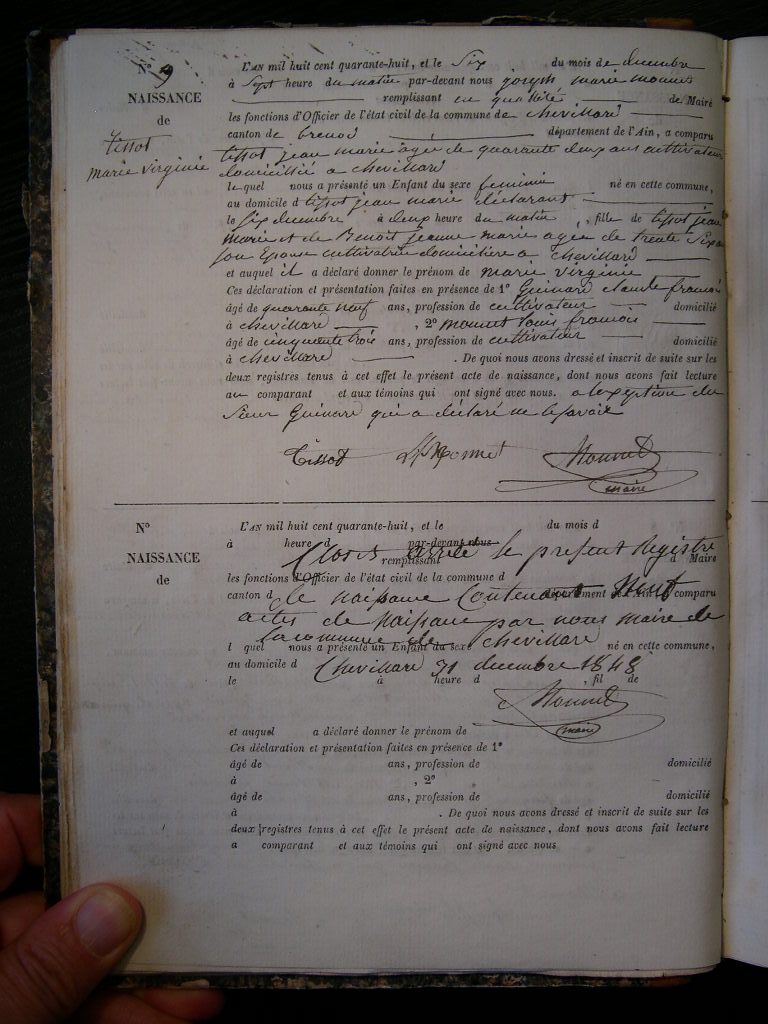 N° 9
NAISSANCE
de
tissot
marie virginie
L'AN mil huit cent quarante-huit, et le Six du mois de decembre
à Sept heure du matin par-devant nous joseph marie monnet
remplissant en qualité de Maire
les fonctions d'Officier de l'état civil de la commune de chevillard
canton de brenod département de l'Ain, a comparu
tissot jean marie agé de quarante deux ans cultivateur
domicillié a chevillard
le quel nous a présenté un Enfant du sexe feminin né en cette commune,
au domicile d tissot jean marie déclarant
le six decembre à deux heure du matin, fille de tissot jean
marie et de Benoit jeanne marie agée de trente Six ans
son Epouse cultivatrice domicilière a chevillard
et auquel il a déclaré donner le prénom de marie virginie
Ces déclaration et présentation faites en présence de 1° Guinard claude francois
âgé de quarante neuf ans, profession de cultivateur domicilié
à chevillard, 2° monnet louis francois
âgé de cinquante trois ans, profession de cultivateur domicilié
à chevillard. De quoi nous avons dressé et inscrit de suite sur les
deux registres tenus à cet effet le présent acte de naissance, dont nous avons fait lecture
au comparant et aux témoins qui ont signé avec nous. a lexeption du
Sieur Guinard qui a déclaré ne le savoir
Tissot LfMonnet Monnet
maire
N°
NAISSANCE
de
L'AN mil huit cent quarante-huit, et le du mois d
à heure d par-devant nous
Clos et arrété le present Registre
remplissant d Maire
les fonctions d'Officier de l'état civil de la commune d
canton d département de l'Ain, a comparu
de naissance Contenant Neuf
actes de Naissance par nous maire de
la commune de chevillard
l quel nous a présenté un Enfant du sexe né en cette commune,
au domicile d Chevillard 31 decembre 1848
le à heure d , fil de
Monnet
maire
et auquel a déclaré donner le prénom de
Ces déclaration et présentation faites en présence de 1°
âgé de ans, profession de domicilié
à , 2°
âgé de ans, profession de domicilié
à . De quoi nous avons dressé et inscrit de suite sur les
deux registres tenus à cet effet le présent acte de naissance, dont nous avons fait lecture
a comparant et aux témoins qui ont signé avec nous